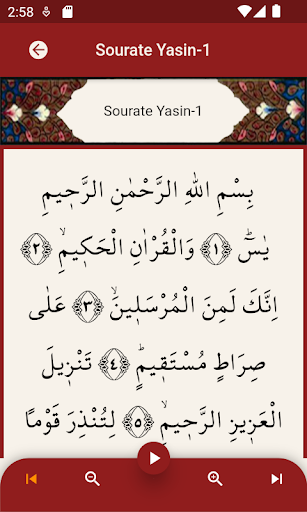 2:58
Sourate Yasin-1
Sourate Yasin-1
بِسْمِ اللهِ الرَّحْمٰنِ الرَّحٖيمِ
يٰسٓ ۚ ﴿١﴾ وَالْقُرْاٰنِ الْحَكٖيمِۙ ﴿٢﴾
اِنَّكَ لَمِنَ الْمُرْسَلٖينَۙ ﴿٣﴾ عَلٰى
صِرَاطٍ مُسْتَقٖيمٍؕ ﴿٤﴾ تَنْزٖيلَ
الْعَزٖيزِ الرَّحٖيمِۙ ﴿٥﴾ لِتُنْذِرَ قَوْمًا